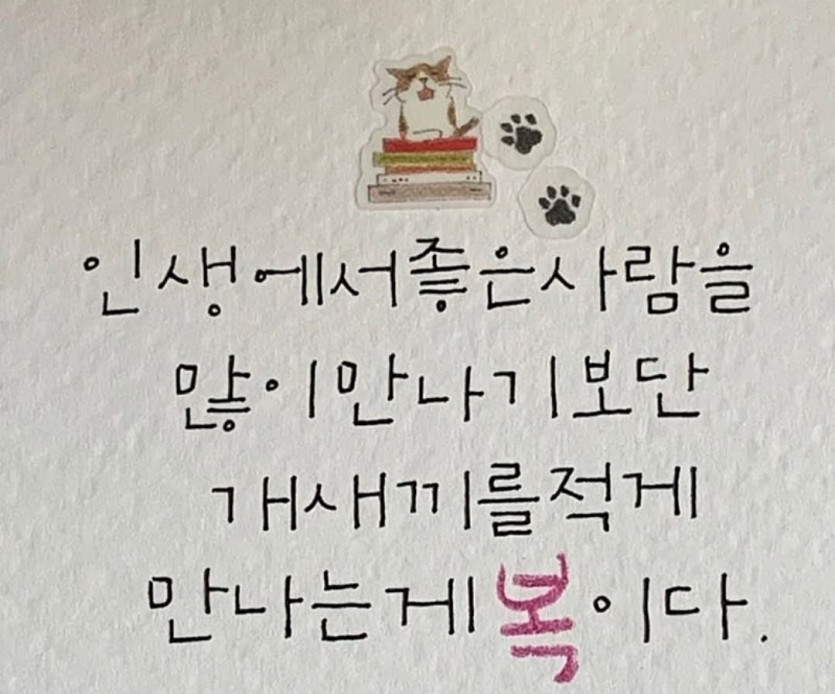 인생에서좋은사람을
많이만나기보단
개새끼를적게
만나는게복이다.